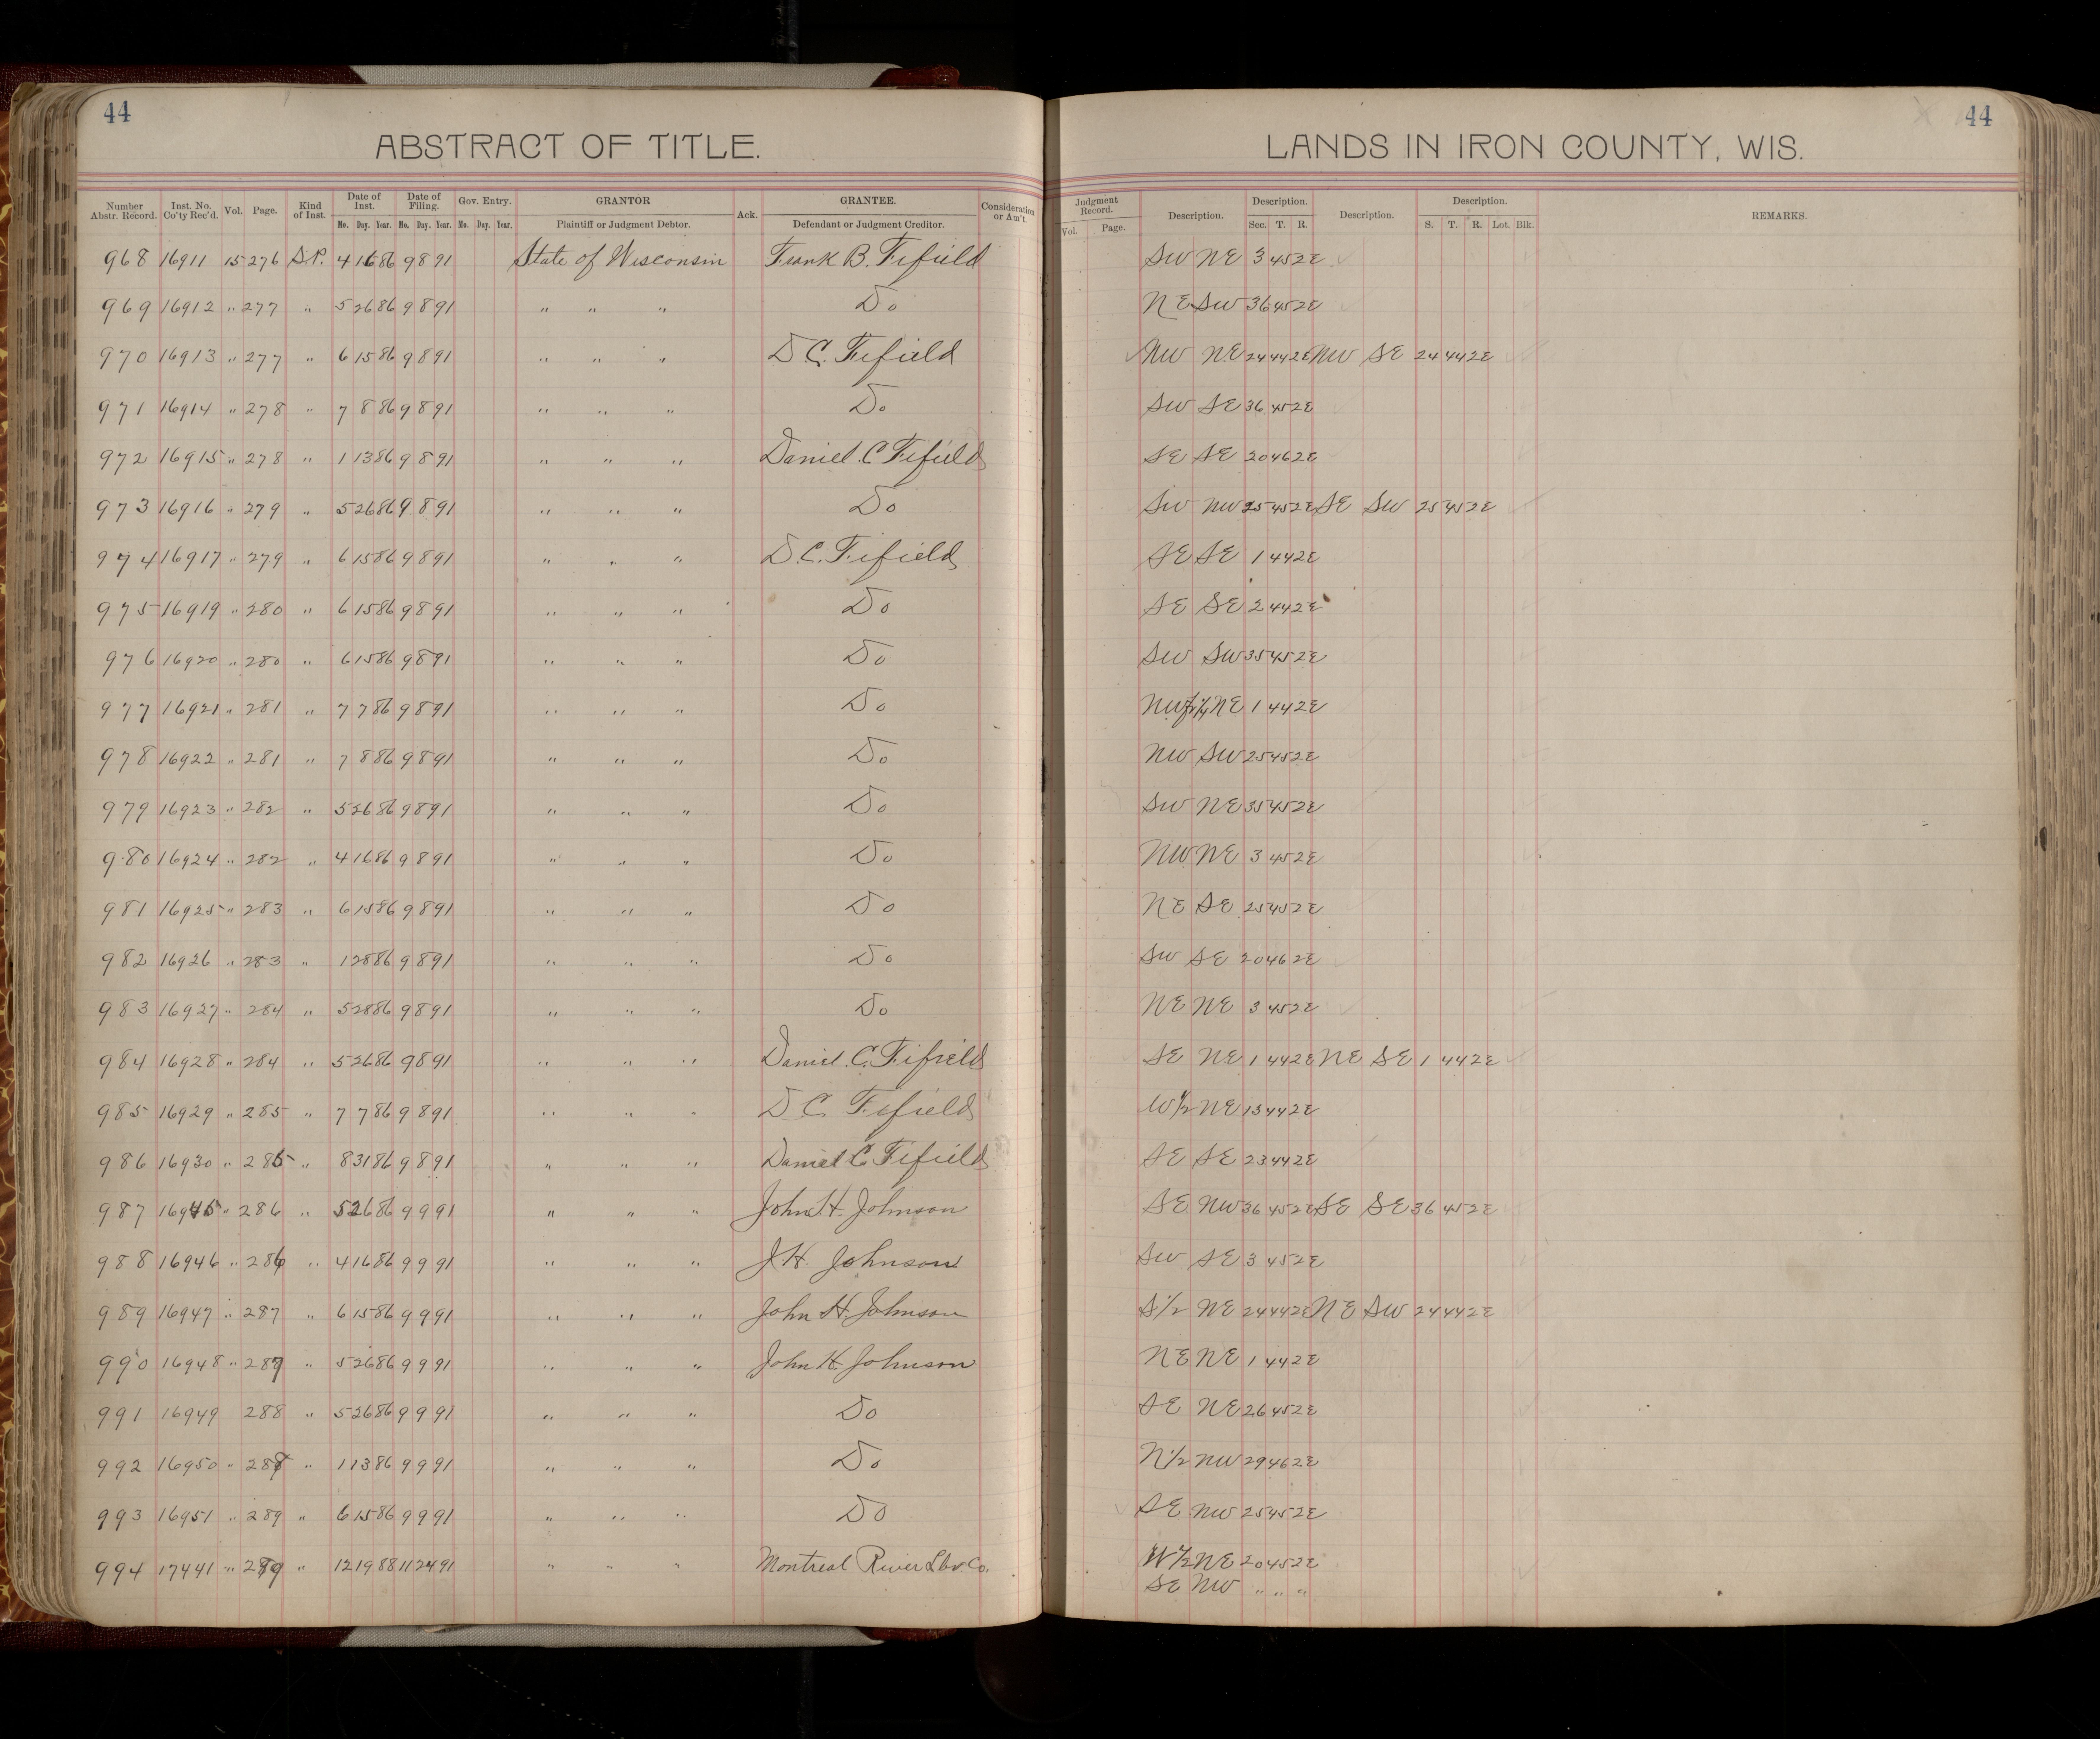 44
44
ABSTRACT OF TITLE.
LANDS IN IRON COUNTY, WIS.
Number Abstr. Record. Inst. No. Co'ty Rec'd. Vol. Page. Kind of Inst. Date of Inst. Mo. Day. Year. Date of Filing. Mo. Day. Year. Gov. Entry. Mo. Day. Year. GRANTOR Plaintiff or Judgment Debtor. Ack. GRANTEE. Defendant or Judgment Creditor. Consideration or Am't. Judgment Record. Vol. Page. Description. Description. Sec. T. R. Description. Description. S. T. R. Lot. Blk. REMARKS.
968 16911 15 276 S.P. 4 16 86 9 8 91 State of Wisconsin Frank B. Fifield SW NE 3 45 2E
969 16912 " 277 " 5 26 86 9 8 91 " " " Do NE SW 36 45 2E
970 16913 " 277 " 6 15 86 9 8 91 " " " D C. Fifield NW NE 24 44 2E NW SE 24 44 2E
971 16914 " 278 " 7 8 86 9 8 91 " " " Do SW SE 36 45 2E
972 16915 " 278 " 1 13 86 9 8 91 " " " Daniel C Fifield SE SE 20 46 2E
973 16916 " 279 " 5 26 86 9 8 91 " " " Do SW NW 25 45 2E SE SW 25 45 2E
974 16917 " 279 " 6 15 86 9 8 91 " " " D.C. Fifield SE SE 1 44 2E
975 16919 " 280 " 6 15 86 9 8 91 " " " Do SE SE 2 44 2E
976 16920 " 280 " 6 15 86 9 8 91 " " " Do SW SW 35 45 2E
977 16921 " 281 " 7 7 86 9 8 91 " " " Do NW frl 1/4 NE 1 44 2E
978 16922 " 281 " 7 8 86 9 8 91 " " " Do NW SW 25 45 2E
979 16923 " 282 " 5 26 86 9 8 91 " " " Do SW NE 35 45 2E
980 16924 " 282 " 4 16 86 9 8 91 " " " Do NW NE 3 45 2E
981 16925 " 283 " 6 15 86 9 8 91 " " " Do NE SE 25 45 2E
982 16926 " 283 " 1 28 86 9 8 91 " " " Do SW SE 20 46 2E
983 16927 " 284 " 5 28 86 9 8 91 " " " Do NE NE 3 45 2E
984 16928 " 284 " 5 26 86 9 8 91 " " " Daniel C. Fifield SE NE 1 44 2E NE SE 1 44 2E
985 16929 " 285 " 7 7 86 9 8 91 " " " D C. Fifield W 1/2 NE 13 44 2E
986 16930 " 285 " 8 31 86 9 8 91 " " " Daniel C Fifield SE SE 23 44 2E
987 16945 " 286 " 5 26 86 9 9 91 " " " John H. Johnson SE NW 36 45 2E SE SE 36 45 2E
988 16946 " 286 " 4 16 86 9 9 91 " " " J H. Johnson SW SE 3 45 2E
989 16947 " 287 " 6 15 86 9 9 91 " " " John H Johnson S 1/2 NE 24 44 2E NE SW 24 44 2E
990 16948 " 287 " 5 26 86 9 9 91 " " " John H. Johnson NE NE 1 44 2E
991 16949 288 " 5 26 86 9 9 91 " " " Do SE NE 26 45 2E
992 16950 " 288 " 1 13 86 9 9 91 " " " Do N 1/2 NW 29 46 2E
993 16951 " 289 " 6 15 86 9 9 91 " " " Do SE NW 25 45 2E
994 17441 " 289 " 12 19 88 11 24 91 " " " Montreal River Lbr Co. W 1/2 NE 20 45 2E
SE NW " " "